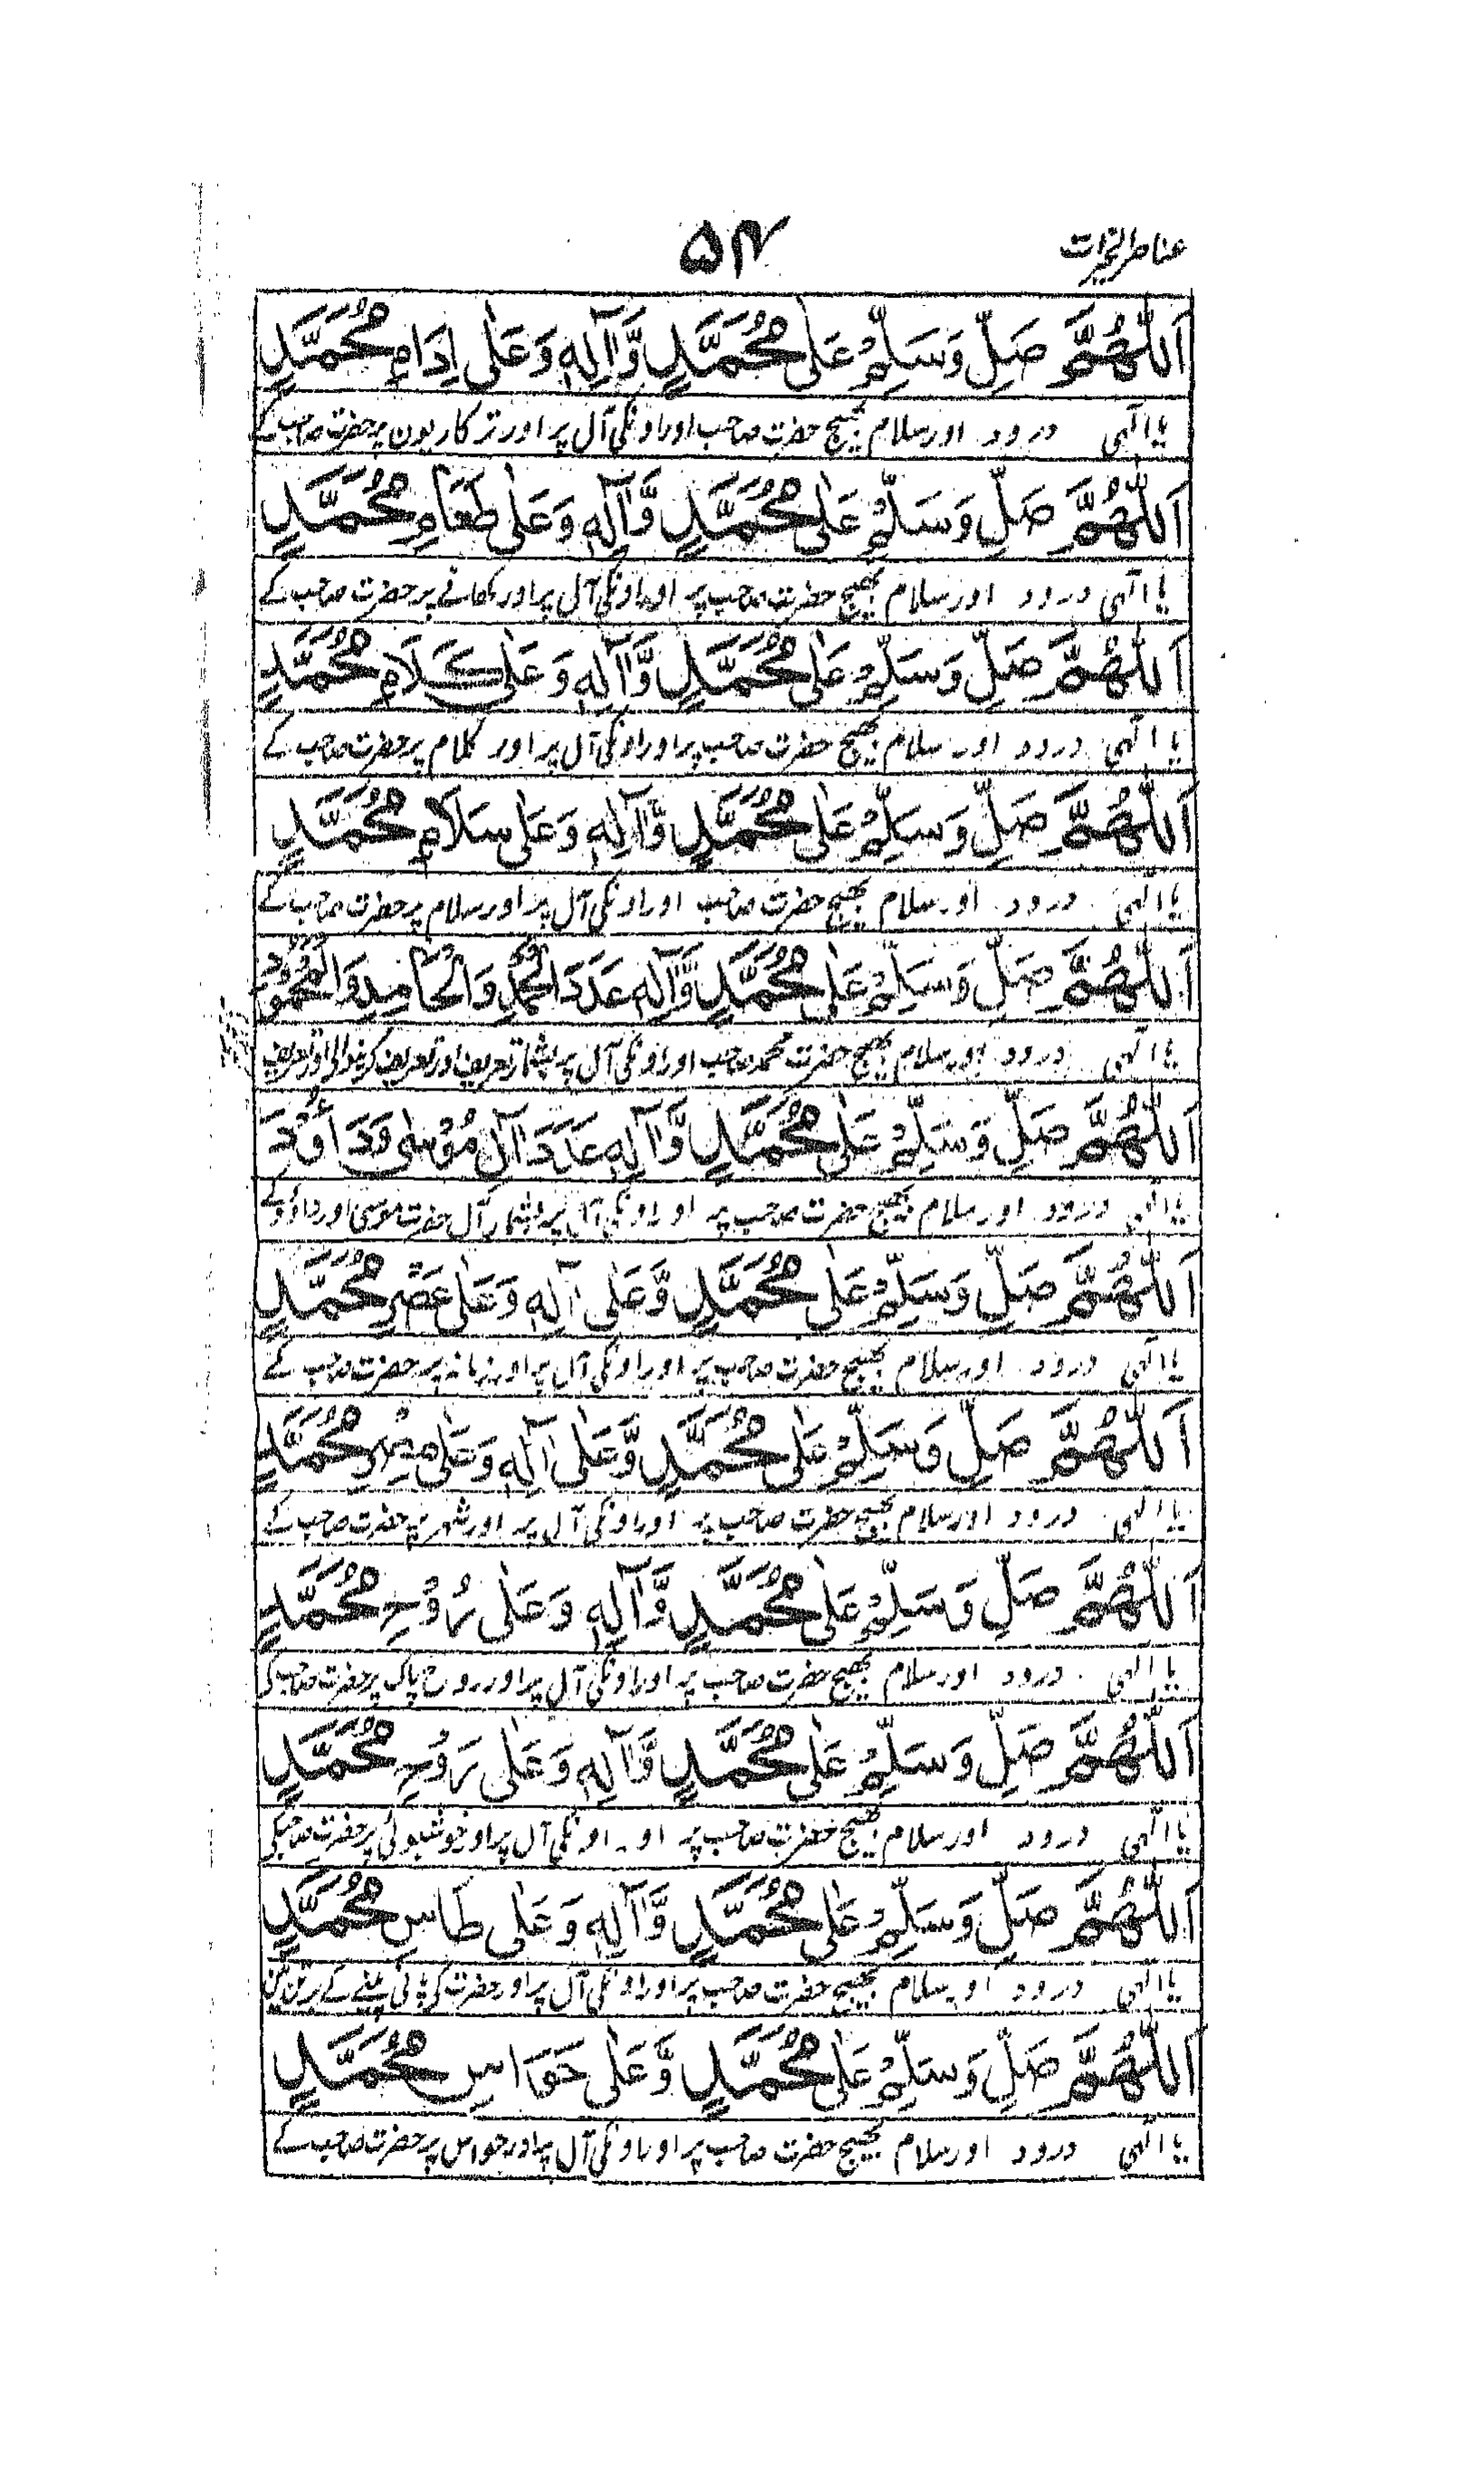 عناصر الخیرات
۵۴
اَللّٰهُمَّ صَلِّ وَسَلِّمْ عَلٰى مُحَمَّدٍ وَّاٰلِهٖ وَعَلٰى اِدَامِ مُحَمَّدٍ
یا الٰہی درود اور سلام بھیج حضرت صاحب اور اونکی آل پر اور ترکاریون پر حضرت صاحب کے
اَللّٰهُمَّ صَلِّ وَسَلِّمْ عَلٰى مُحَمَّدٍ وَّاٰلِهٖ وَعَلٰى طَعَامِ مُحَمَّدٍ
یا الٰہی درود اور سلام بھیج حضرت صاحب پر اور اونکی آل پر اور کھانے پر حضرت صاحب کے
اَللّٰهُمَّ صَلِّ وَسَلِّمْ عَلٰى مُحَمَّدٍ وَّاٰلِهٖ وَعَلٰى كَلَامِ مُحَمَّدٍ
یا الٰہی درود اور سلام بھیج حضرت صاحب پر اور اونکی آل پر اور کلام پر حضرت صاحب کے
اَللّٰهُمَّ صَلِّ وَسَلِّمْ عَلٰى مُحَمَّدٍ وَّاٰلِهٖ وَعَلٰى سَلَامِ مُحَمَّدٍ
یا الٰہی درود اور سلام بھیج حضرت صاحب اور اونکی آل پر اور سلام پر حضرت صاحب کے
اَللّٰهُمَّ صَلِّ وَسَلِّمْ عَلٰى مُحَمَّدٍ وَّاٰلِهٖ عَدَدَ الْحَمْدِ وَالْحَامِدِ وَالْمَحْمُوْدِ
یا الٰہی درود اور سلام بھیج حضرت محمد صاحب اور اونکی آل پر بشمار تعریف اور تعریف کرنیوالی اور تعریف
اَللّٰهُمَّ صَلِّ وَسَلِّمْ عَلٰى مُحَمَّدٍ وَّاٰلِهٖ عَدَدَ اٰلِ مُوْسٰى وَدَاوٗدَ
یا الٰہی درود اور سلام بھیج حضرت صاحب پر اور اونکی آل پر بشمار آل حضرت موسی اور داؤد کے
اَللّٰهُمَّ صَلِّ وَسَلِّمْ عَلٰى مُحَمَّدٍ وَّعَلٰى اٰلِهٖ وَعَلٰى عَصْرِ مُحَمَّدٍ
یا الٰہی درود اور سلام بھیج حضرت صاحب پر اور اونکی آل پر اور زمانہ پر حضرت صاحب کے
اَللّٰهُمَّ صَلِّ وَسَلِّمْ عَلٰى مُحَمَّدٍ وَّعَلٰى اٰلِهٖ وَعَلٰى مِصْرِ مُحَمَّدٍ
یا الٰہی درود اور سلام بھیج حضرت صاحب پر اور اونکی آل پر اور شہر پر حضرت صاحب کے
اَللّٰهُمَّ صَلِّ وَسَلِّمْ عَلٰى مُحَمَّدٍ وَّاٰلِهٖ وَعَلٰى رُوْحِ مُحَمَّدٍ
یا الٰہی درود اور سلام بھیج حضرت صاحب پر اور اونکی آل پر اور روح پاک پر حضرت صاحب کی
اَللّٰهُمَّ صَلِّ وَسَلِّمْ عَلٰى مُحَمَّدٍ وَّاٰلِهٖ وَعَلٰى رَوْحِ مُحَمَّدٍ
یا الٰہی درود اور سلام بھیج حضرت صاحب پر اور اونکی آل پر اور خوشبوئی پر حضرت صاحبکی
اَللّٰهُمَّ صَلِّ وَسَلِّمْ عَلٰى مُحَمَّدٍ وَّاٰلِهٖ وَعَلٰى طَاسِ مُحَمَّدٍ
یا الٰہی درود اور سلام بھیج حضرت صاحب پر اور اونکی آل پر اور حضرت کی پانی پینے کے برتن
اَللّٰهُمَّ صَلِّ وَسَلِّمْ عَلٰى مُحَمَّدٍ وَّعَلٰى حَوَاسِ مُحَمَّدٍ
یا الٰہی درود اور سلام بھیج حضرت صاحب پر اور اونکی آل پر اور حواس پر حضرت صاحب کے